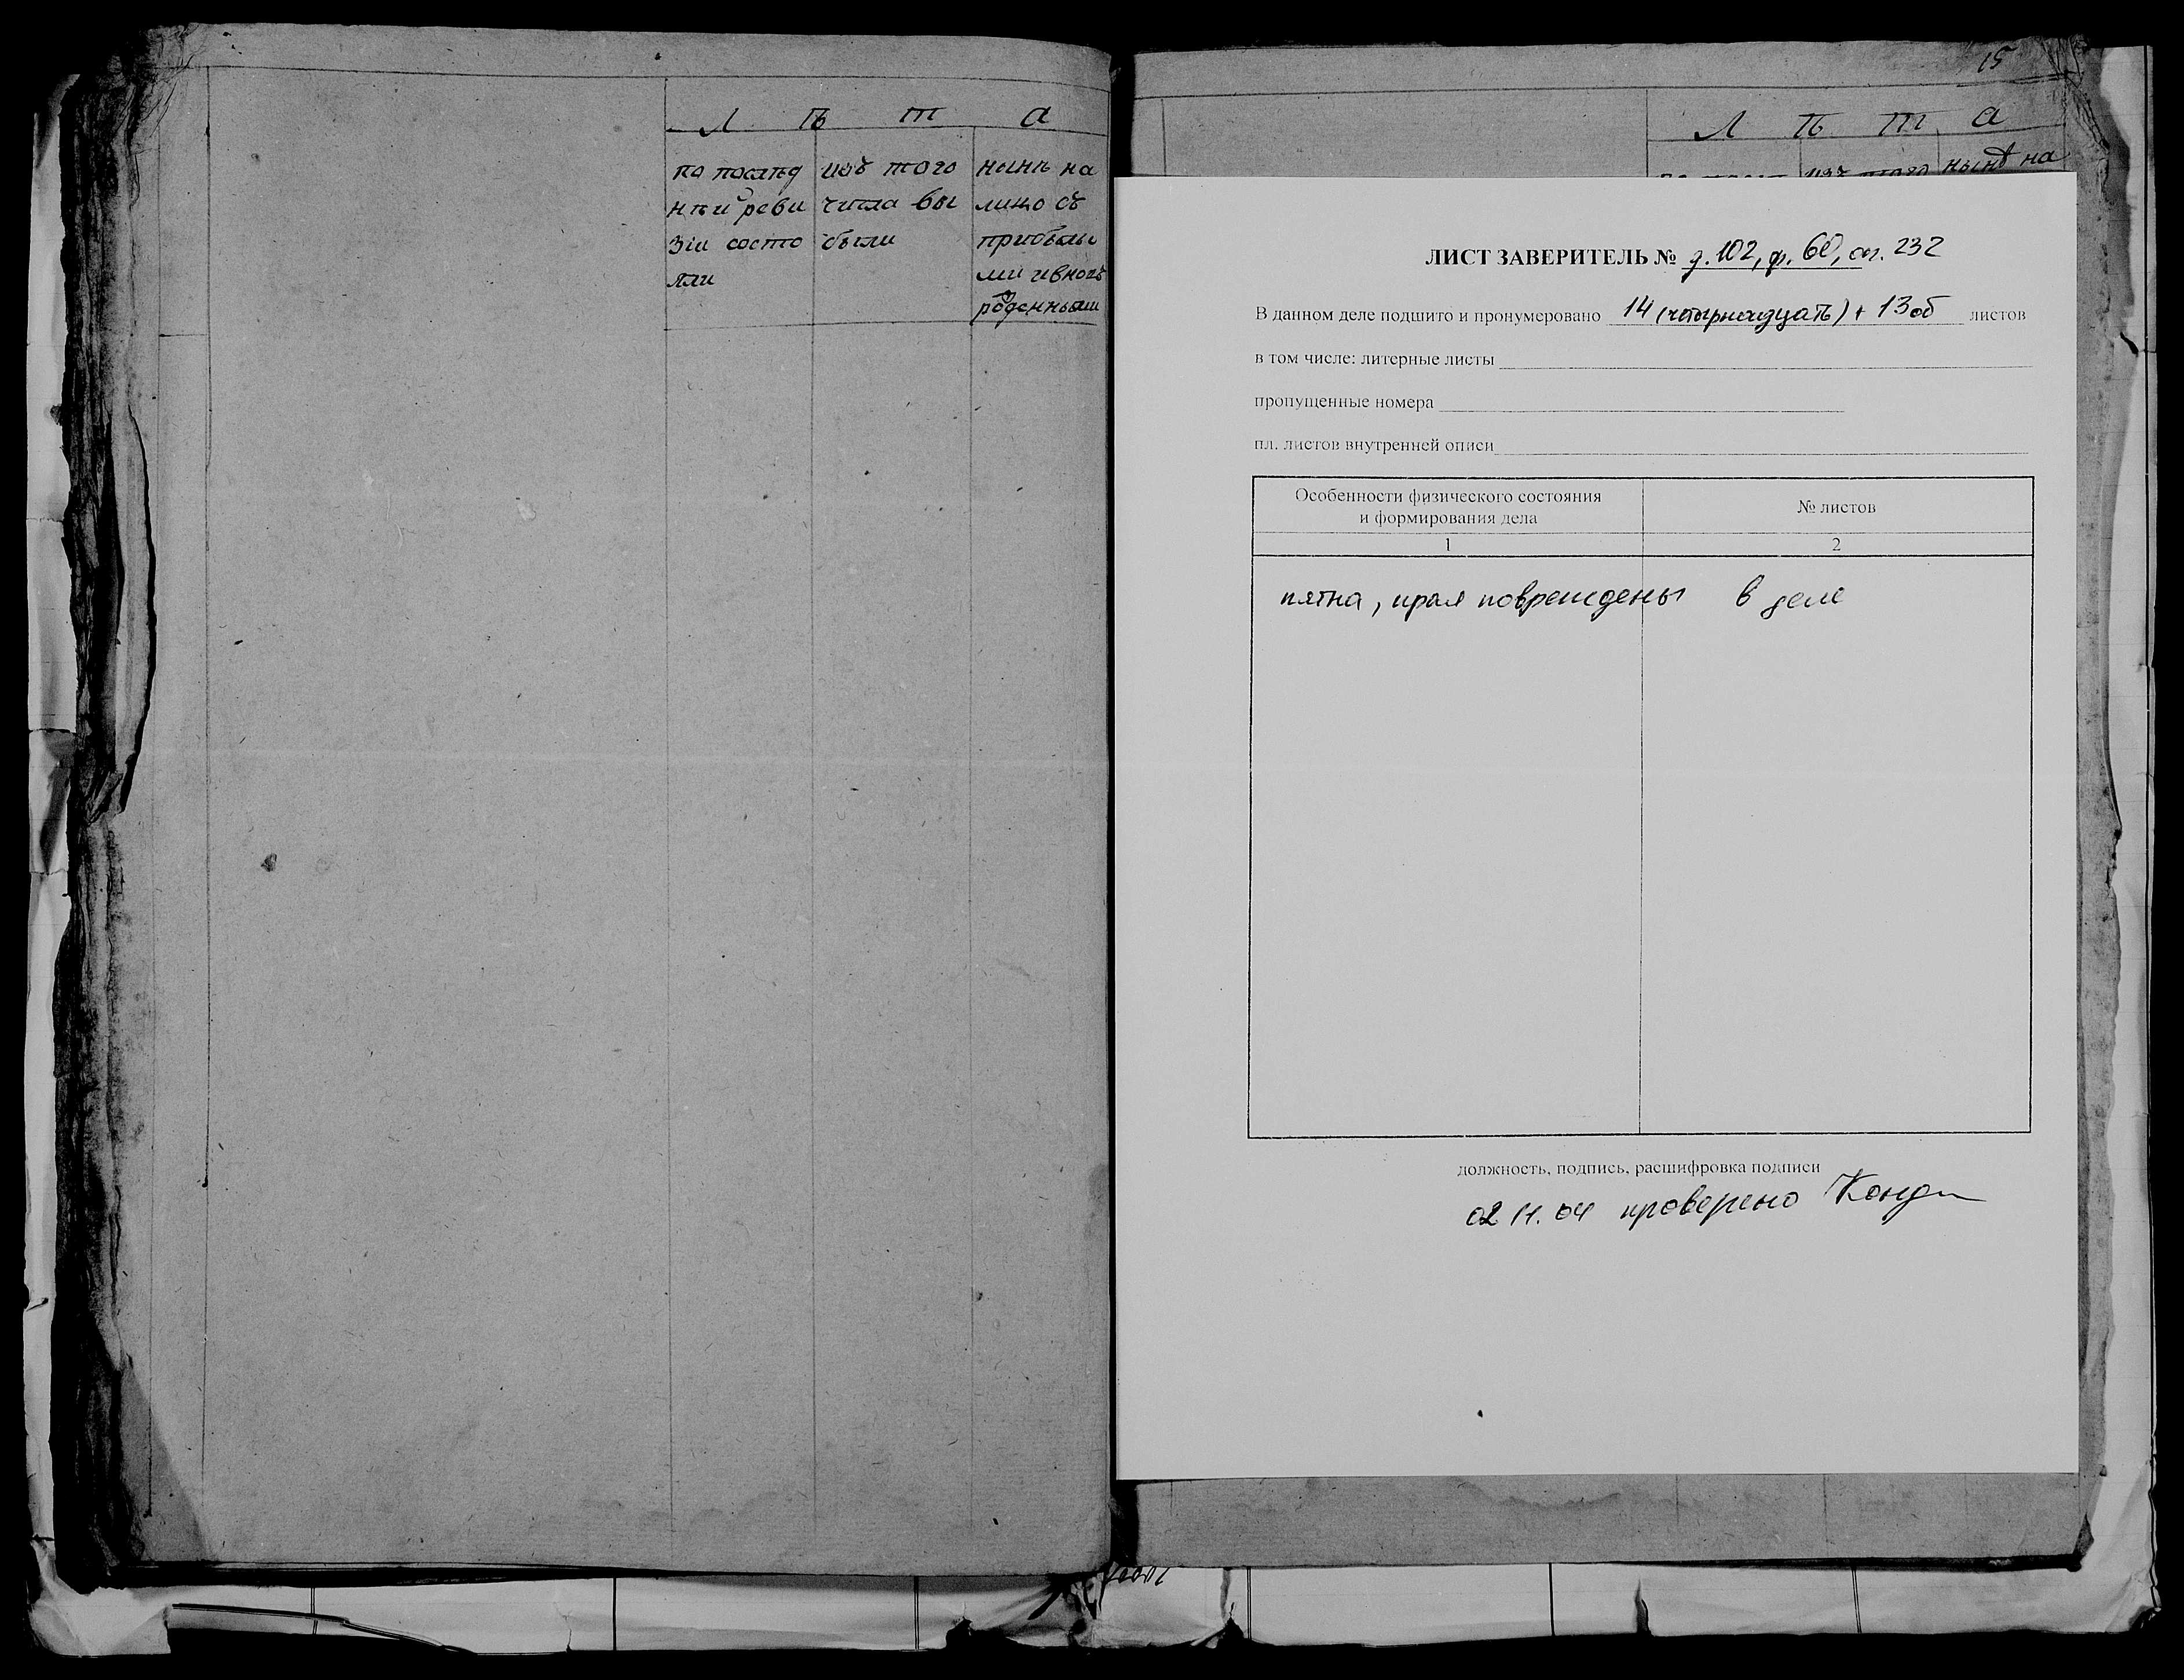 Л ѣ т а
по послѣд
нѣй реви
зіи состо
яли
изъ того
числа вы
были
нынѣ на
лицо съ
прибылы
ми ивновъ
рожденными
15
Л ѣ т а
изъ того
нынѣ на
ЛИСТ ЗАВЕРИТЕЛЬ № д. 102, ф. 60, оп. 232
В данном деле подшито и пронумеровано 14 (четырнадцать) + 13об листов
в том числе: литерные листы
пропущенные номера
пл. листов внутренней описи
Особенности физического состояния
и формирования дела
№ листов
1
2
пятна, края повреждены
в деле
должность, подпись, расшифровка подписи
02 11. 04 проверено